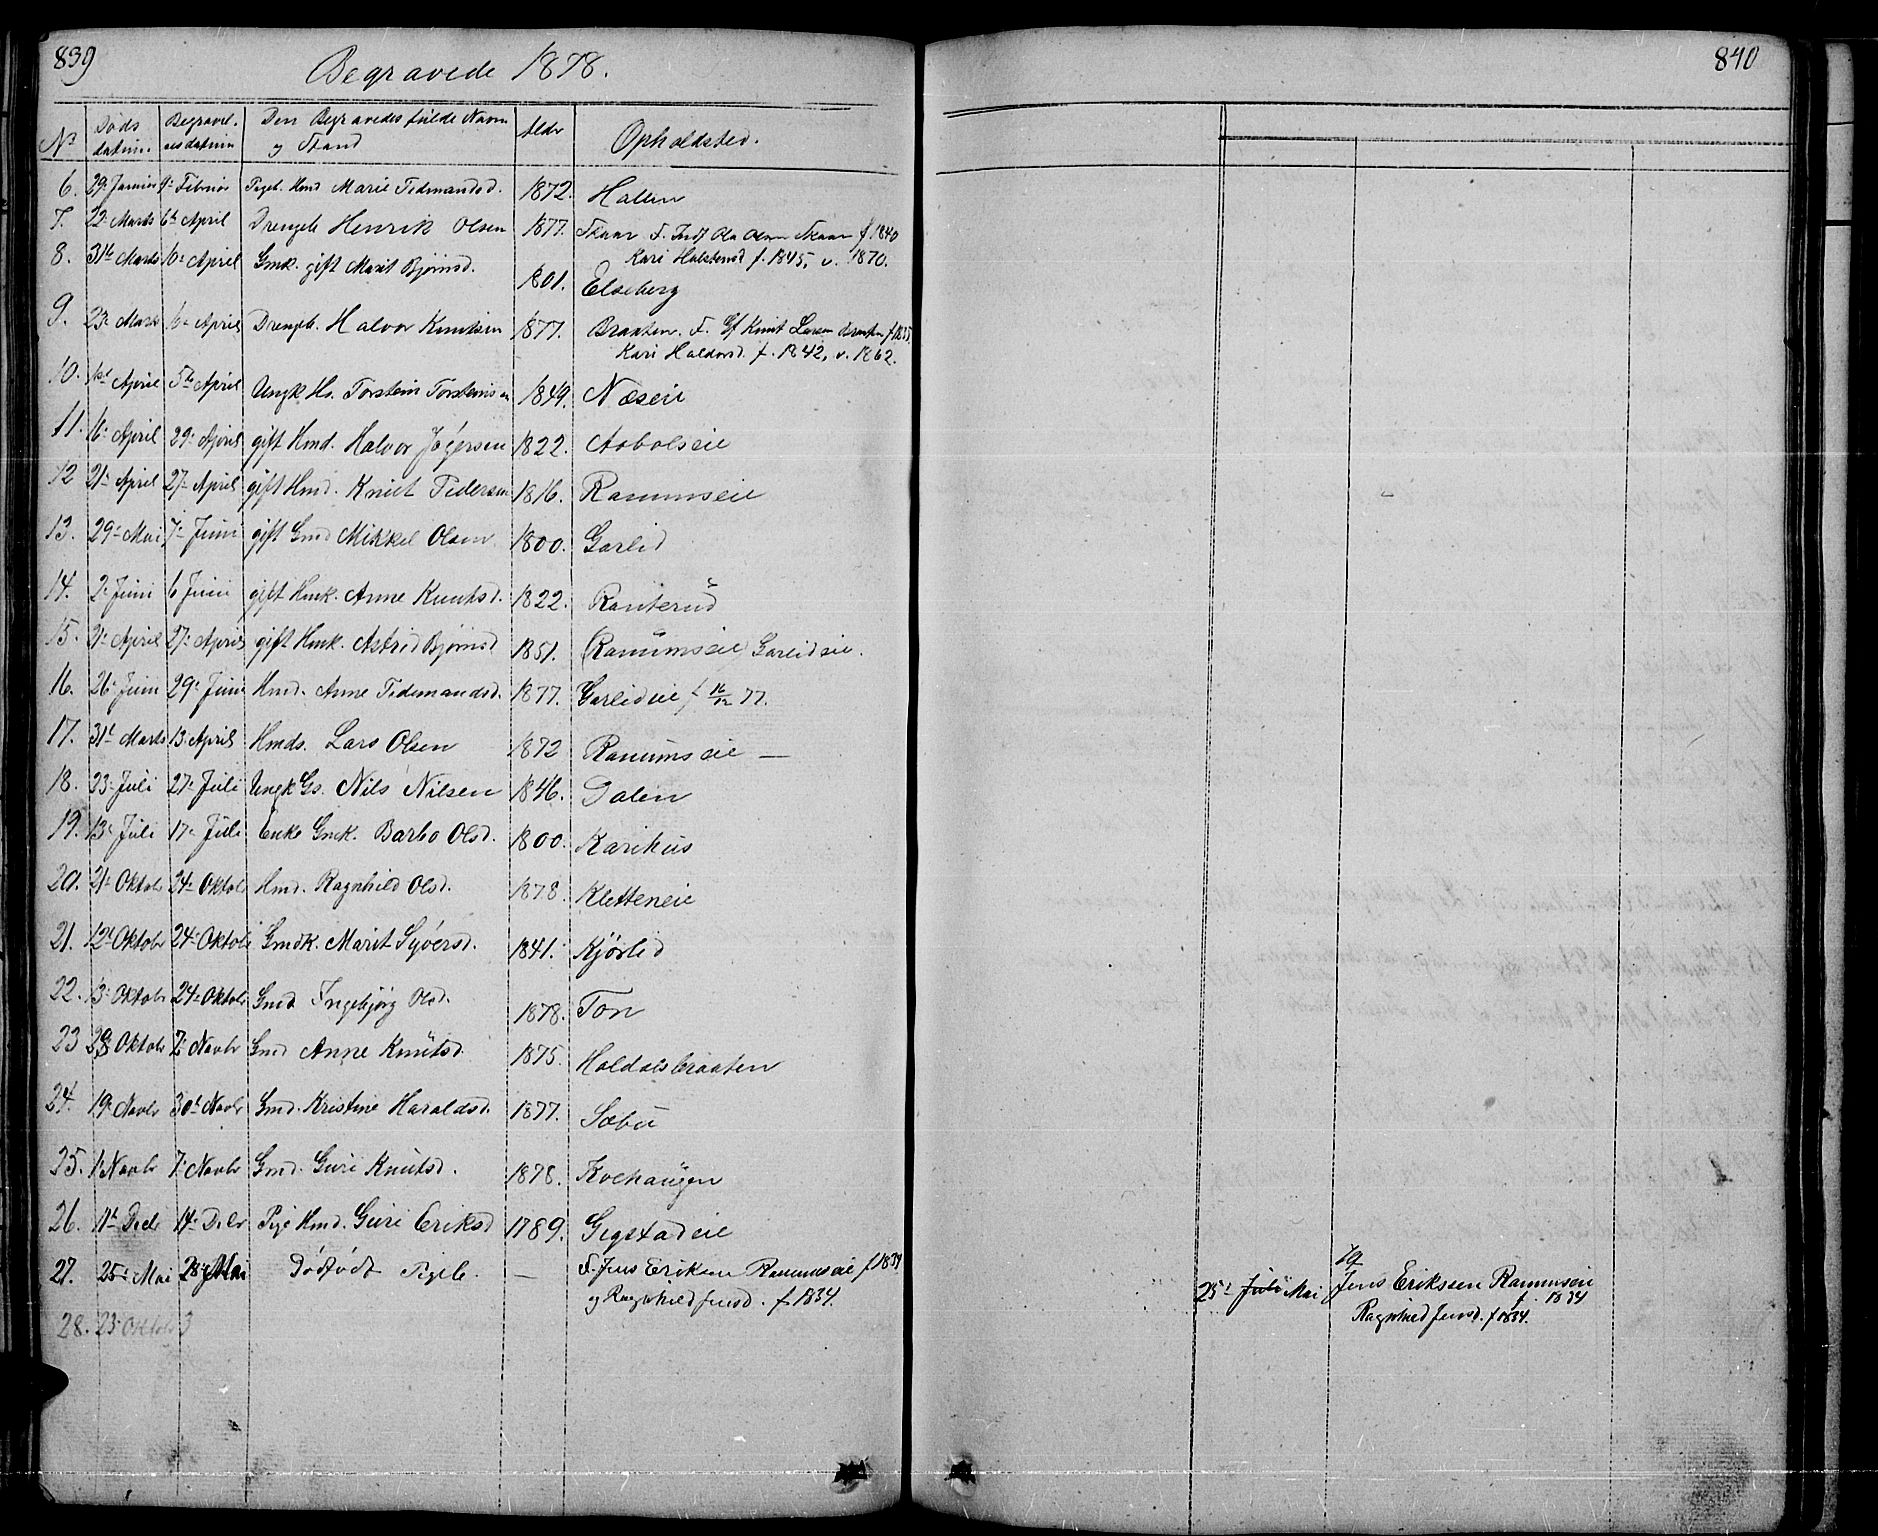 839
Begravede 1878.
No Døds datum. Begravelsesdatum Den Begravedes fulde Navn og Stand Alder Opholdsted.
6. 29. Januar 9. Februar Pigeb. Hmd Marie Tidmandsd. 1872. Halen
7. 22. Marts 6te April Drengeb Henrik Olsen 1877. Skaar F. Indf Ola Olsen Skaar f. 1840
Kari Halstensd f. 1845, v. 1870.
8. 31te Marts 6. April Gmk. gift Marit Bjørnsd. 1801. Elseberg
9. 23. Marts 6. April Drengeb. Halvor Knutsen 1877. Braaten. F. Gf Knut Larsen Braaten f. 1835,
Kari Haldorsd. f. 1842, v. 1862.
10. 1ste April 5te April Ungk Hs. Torstein Torsteinsen 1849. Næseie
11. 16. April 29. April gift Hmd. Halvor Jøgersen 1822. Aabolseie
12 21. April 27. April gift Hmd. Knut Tidersen 1816. Ranumseie
13. 29. Mai 7. Juni gift Gmd Mikkel Olsen 1800. Garlid
14. 2. Juni 6 Juni gift Hmk. Anne Knutsd. 1822. Ranterud
15. 21. April 27. April gift Hmk. Astrid Bjørnsd 1851. (Ranumseie) Garlideie.
16. 26. Juni 29. Juni Hmd. Anne Tidemandsd. 1877. Garlideie f 16/12 77.
17. 31te Marts 13. April Hmds. Lars Olsen 1872 Ranumseie —
18. 23. Juli 27. Juli Ungk Gs. Nils Nilsen 1846. Dalen
19. 13. Juli 17. Juli Enke Gmk. Barbo Olsd. 1800. Karihus
20. 21. Oktobr 24. Oktobr Hmd. Ragnhild Olsd. 1878. Kletteneie
21. 12te Oktobr 24. Oktobr Gmdk. Marit Syversd. 1841. Kjørlid
22. 13. Oktobr 24. Oktobr Gmd Ingebjørg Olsd. 1878. Ton
23 Oktobr 7. Novbr Gmd Anne Knutsd. 1875. Haldalsbraaten
24. 19. Novbr 30te Novbr Gmd. Kristine Haraldsd. 1877. Sæbu
25. 1. Novbr 7. Novbr Gmd. Guri Knutsd. 1878. Kvehaugen
26. 11te Decbr 14. Dcbr Pige Hmd. Guri Eriksd 1789. Gigstadeie
27. 25. Mai 28. Mai Dødfødt Pigeb. — F. Jens Eriksen Ranumseie f 1834
og Ragnhild Jensd. f. 1834.
28. 23. Oktobr 3
840
25. Juli Mai Jens Erikssen Ranumseie
f. 1834
Ragnhild Jensd. f 1834.